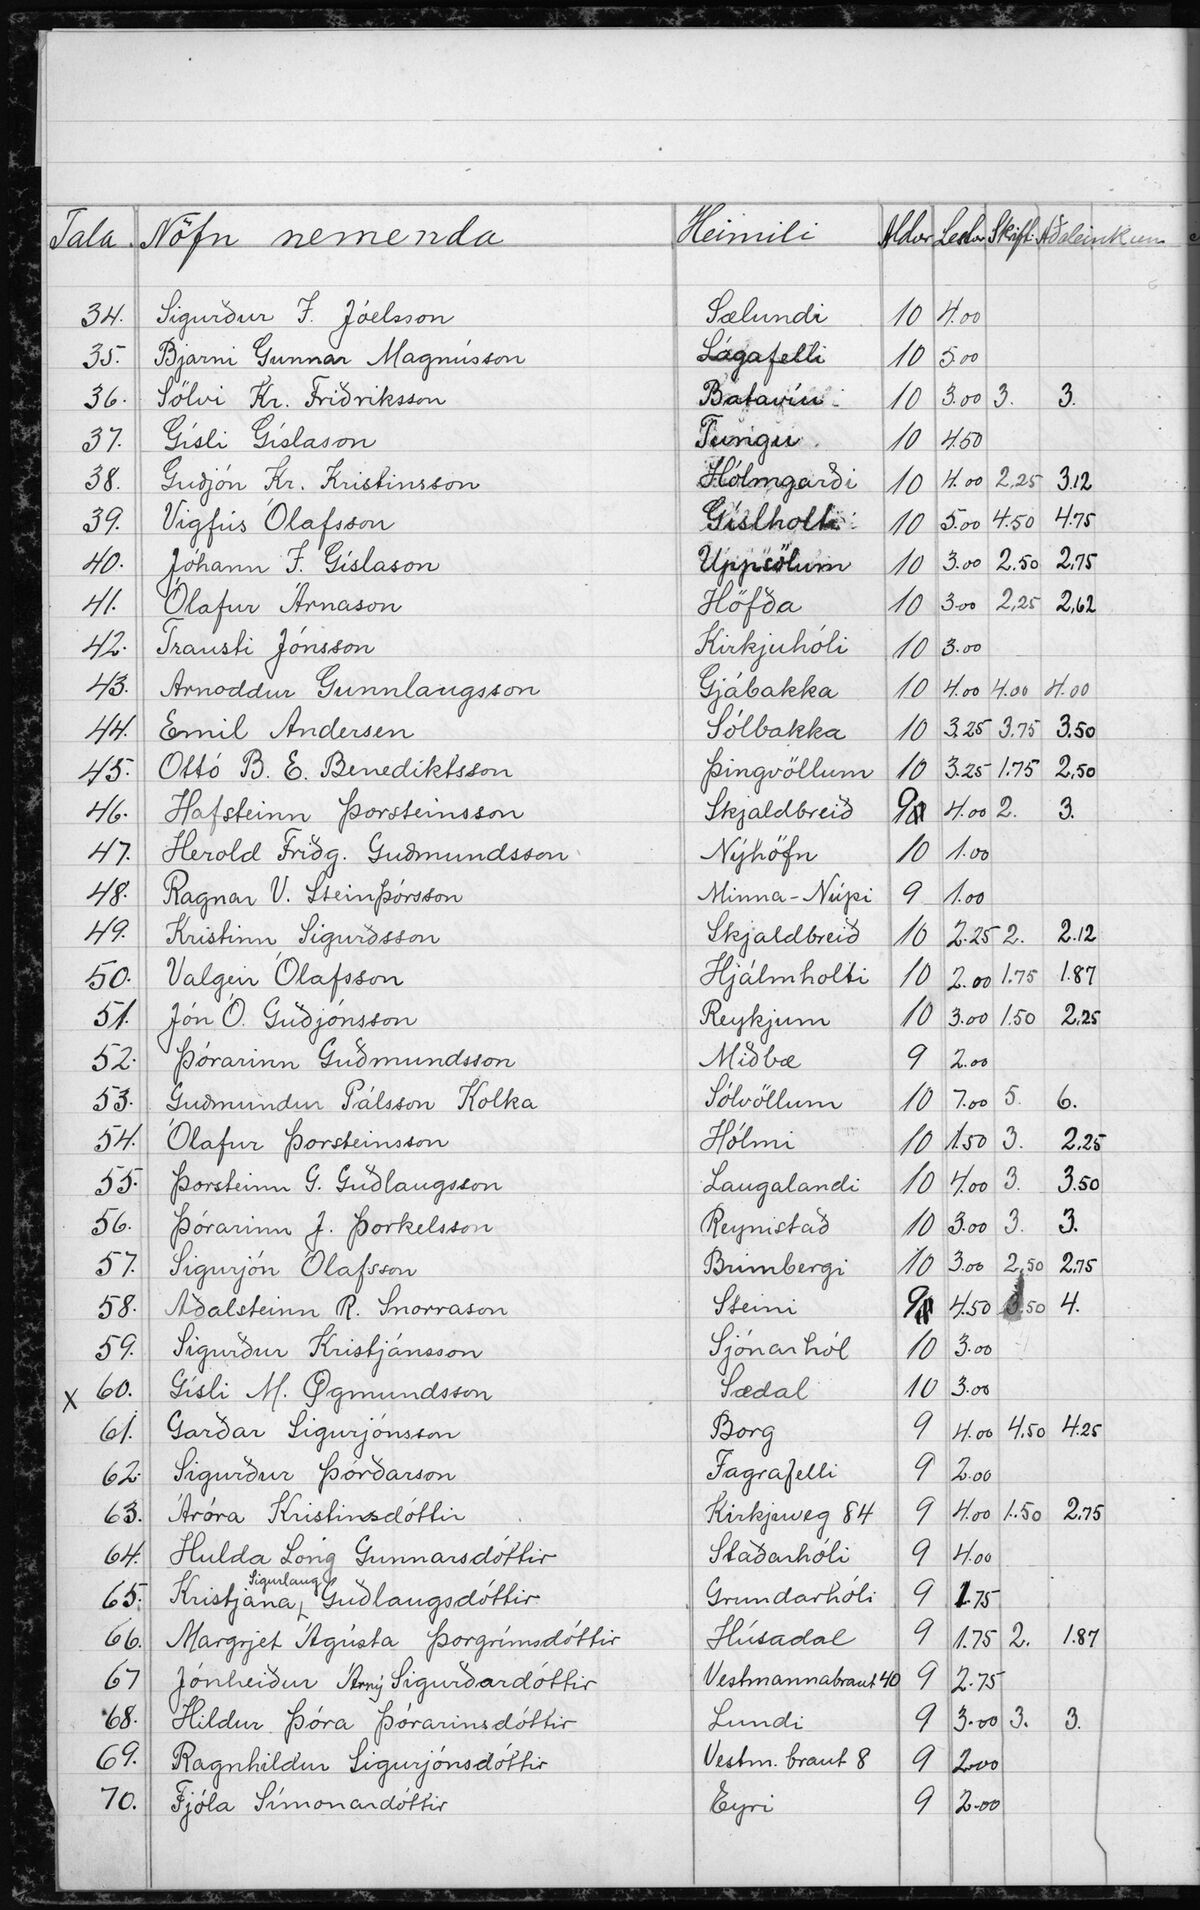 Tala Nöfn nemenda Heimili Aldur Lestur Skrift Aðaleinkunn
34. Sigurður F. Jóelsson Sælundi 10 4.00
35. Bjarni Gunnar Magnússon Lágafelli 10 5.00
36. Sölvi Kr. Friðriksson Batavíu 10 3.00 3. 3.
37. Gísli Gíslason Tungu 10 4.50
38. Guðjón Kr. Kristinsson Hólmgarði 10 4.00 2.25 3.12
39. Vigfús Ólafsson Gíslholti 10 5.00 4.50 4.75
40. Jóhann F. Gíslason Uppsölum 10 3.00 2.50 2.75
41. Ólafur Árnason Höfða 10 3.00 2.25 2,62
42. Trausti Jónsson Kirkjuhóli 10 3.00
43. Arnoddur Gunnlaugsson Gjábakka 10 4.00 4.00 4.00
44. Emil Andersen Sólbakka 10 3.25 3.75 3.50
45. Ottó B. E. Benediktsson Þingvöllum 10 3.25 1.75 2.50
46. Hafsteinn Þorsteinsson Skjaldbreið 9 4.00 2. 3.
47. Herold Friðg. Guðmundsson Nýhöfn 10 1.00
48. Ragnar V. Steinþórsson Minna-Núpi 9 1.00
49. Kristinn Sigurðsson Skjaldbreið 10 2.25 2. 2.12
50. Valgeir Ólafsson Hjálmholti 10 2.00 1.75 1.87
51. Jón Ó. Guðjónsson Reykjum 10 3.00 1.50 2.25
52. Þórarinn Guðmundsson Miðbæ 9 2.00
53. Guðmundur Pálsson Kolka Sólvöllum 10 7.00 5. 6.
54. Ólafur Þorsteinsson Hólmi 10 1.50 3. 2.25
55. Þorsteinn G. Guðlaugsson Laugalandi 10 4.00 3. 3.50
56. Þórarinn J. Þorkelsson Reynistað 10 3.00 3. 3.
57. Sigurjón Ólafsson Brimbergi 10 3.00 2.50 2.75
58. Aðalsteinn R. Snorrason Steini 9 4.50 3.50 4.
59. Sigurður Kristjánsson Sjónarhól 10 3.00
x 60. Gísli M. Øgmundsson Sædal 10 3.00
61. Garðar Sigurjónsson Borg 9 4.00 4.50 4.25
62. Sigurður Þórðarson Fagrafelli 9 2.00
63. Áróra Kristinsdóttir Kirkjuveg 84 9 4.00 1.50 2.75
64. Hulda Long Gunnarsdóttir Staðarhóli 9 4.00
Sigurlaug
65. Kristjana Guðlaugsdóttir Grundarhóli 9 1.75
66. Margrjet Ágústa Þorgrímsdóttir Húsadal 9 1.75 2. 1.87
67 Jónheiður Árný Sigurðardóttir Vestmannabraut 40 9 2.75
68. Hildur Þóra Þórarinsdóttir Lundi 9 3.00 3. 3.
69. Ragnhildur Sigurjónsdóttir Vestm.braut 8 9 2.00
70. Fjóla Símonardóttir Eyri 9 2.00